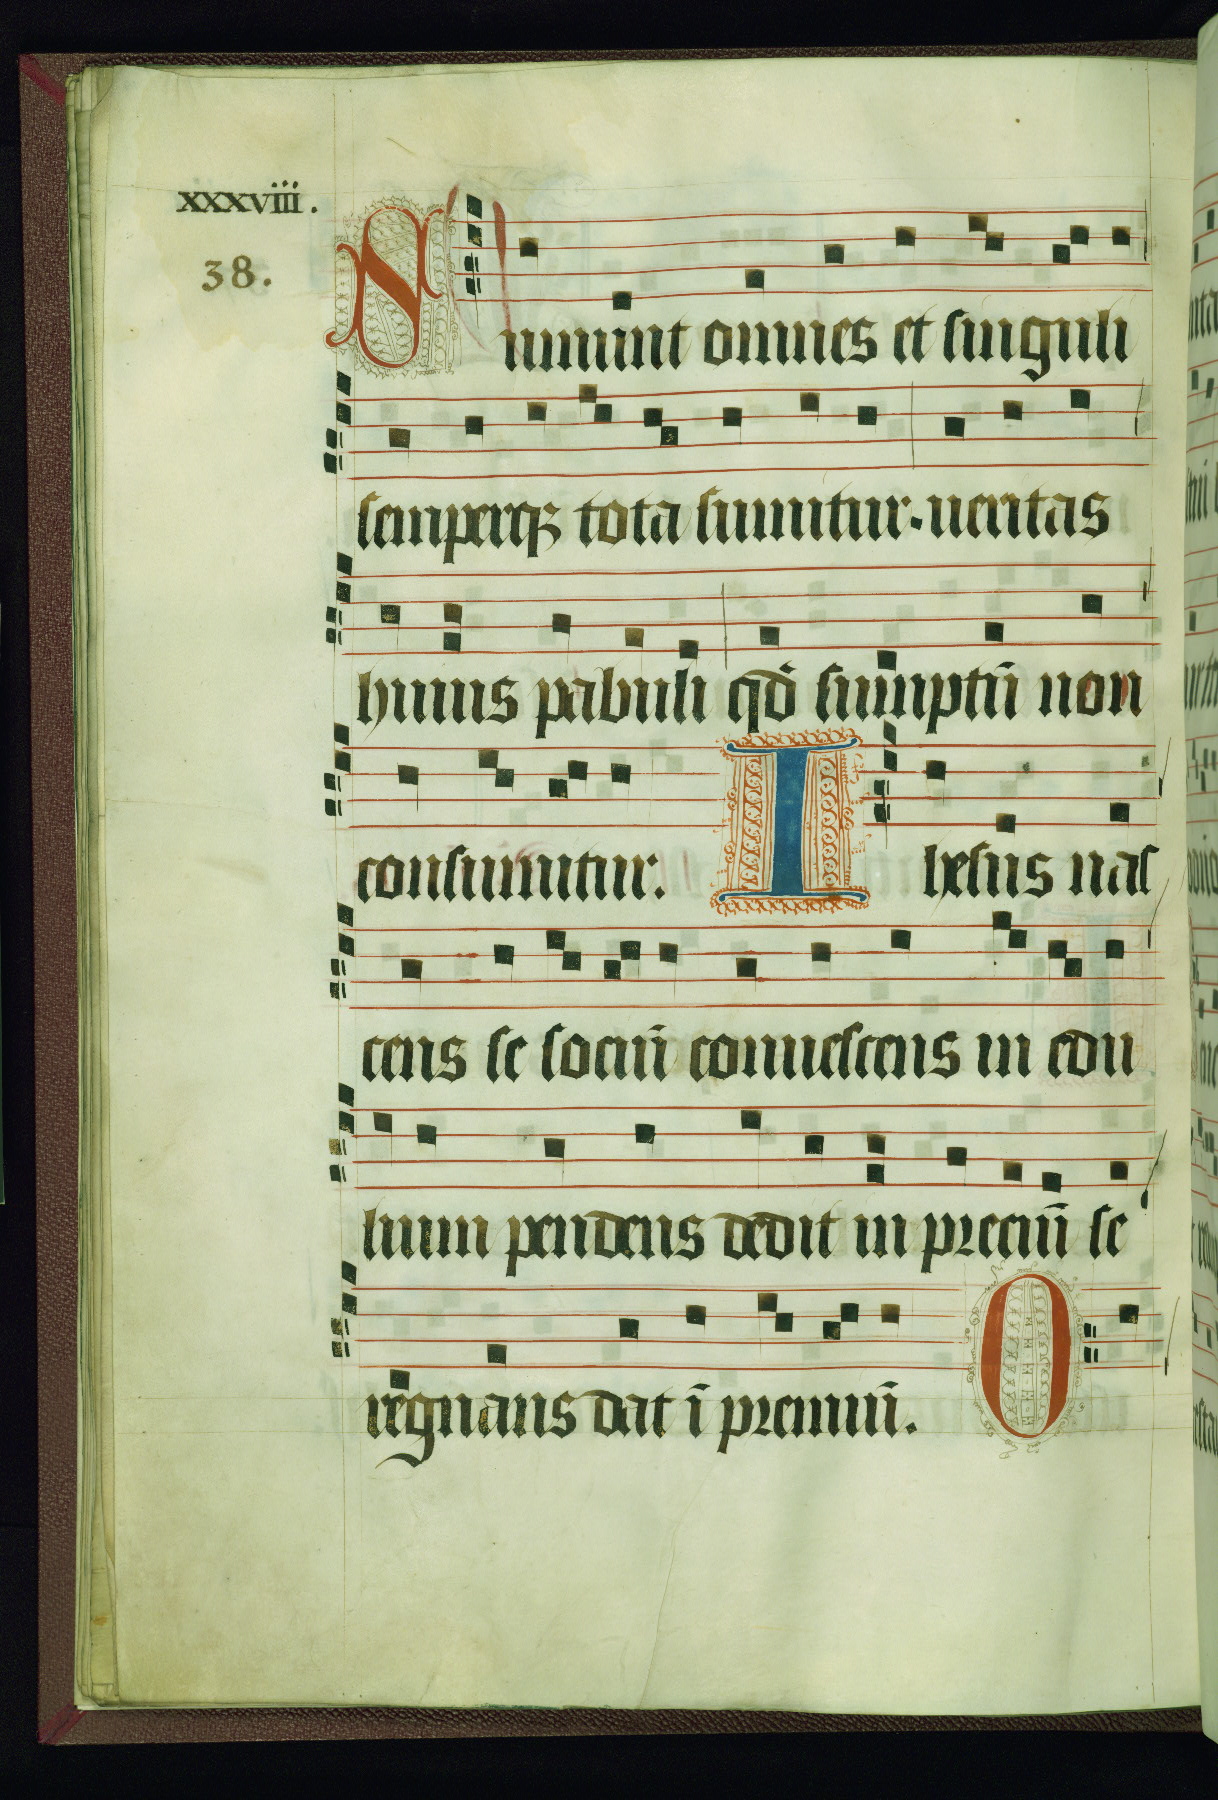 xxxviii.
38.
Sumunt omnes et singuli
semperqȝ tota sumitur. ueritas
huius pabuli qđ sumptū non
consumitur. Ihesus nas
cens se sociū conuescens in edu
lium pendens dedit in preciū se
regnans dat ī premiū. O